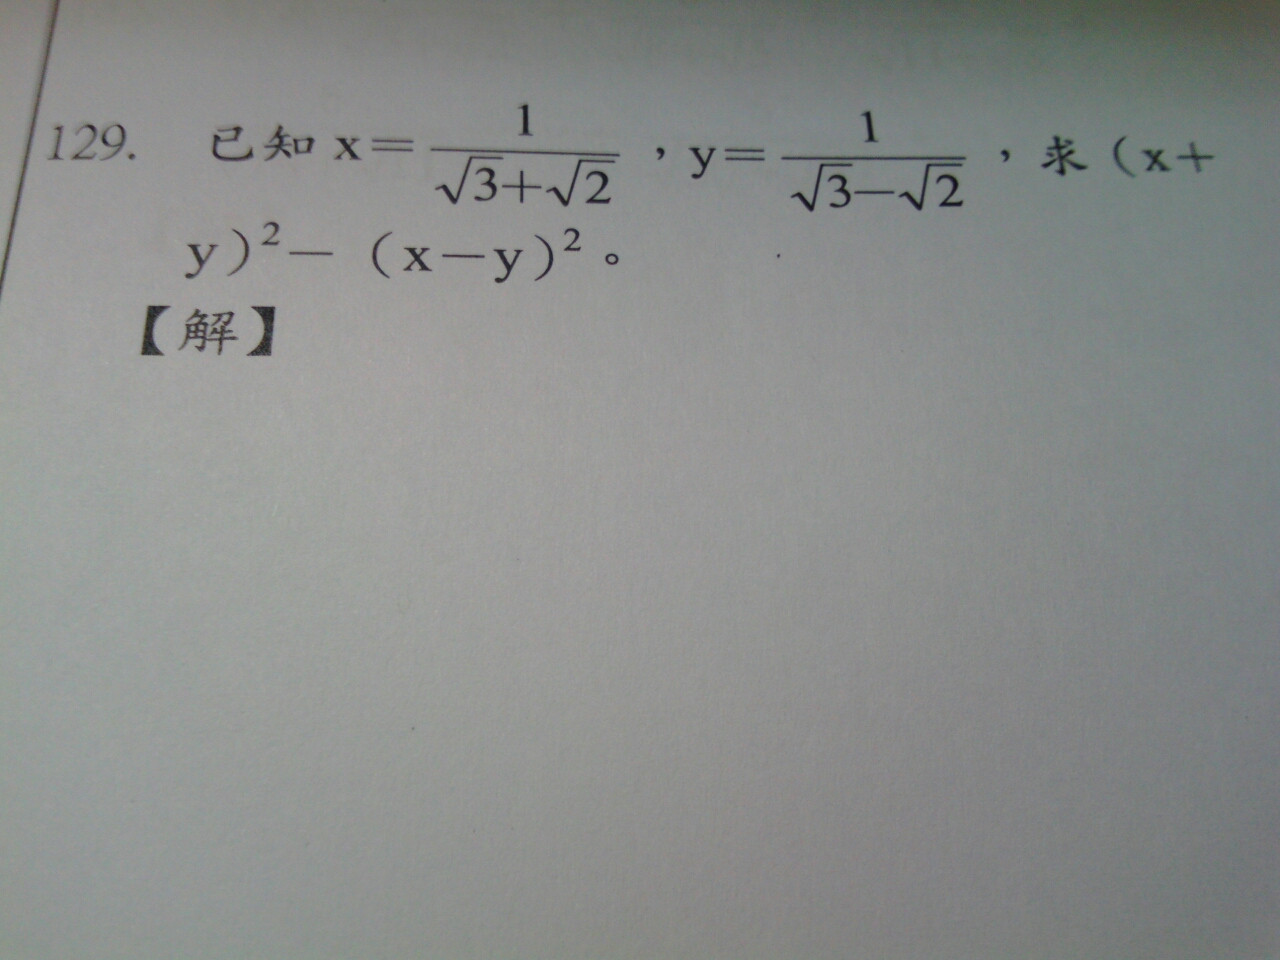 129. 已知 x=\frac{1}{\sqrt{3}+\sqrt{2}}，y=\frac{1}{\sqrt{3}-\sqrt{2}}，求（x+
y）²－（x－y）²。
【解】